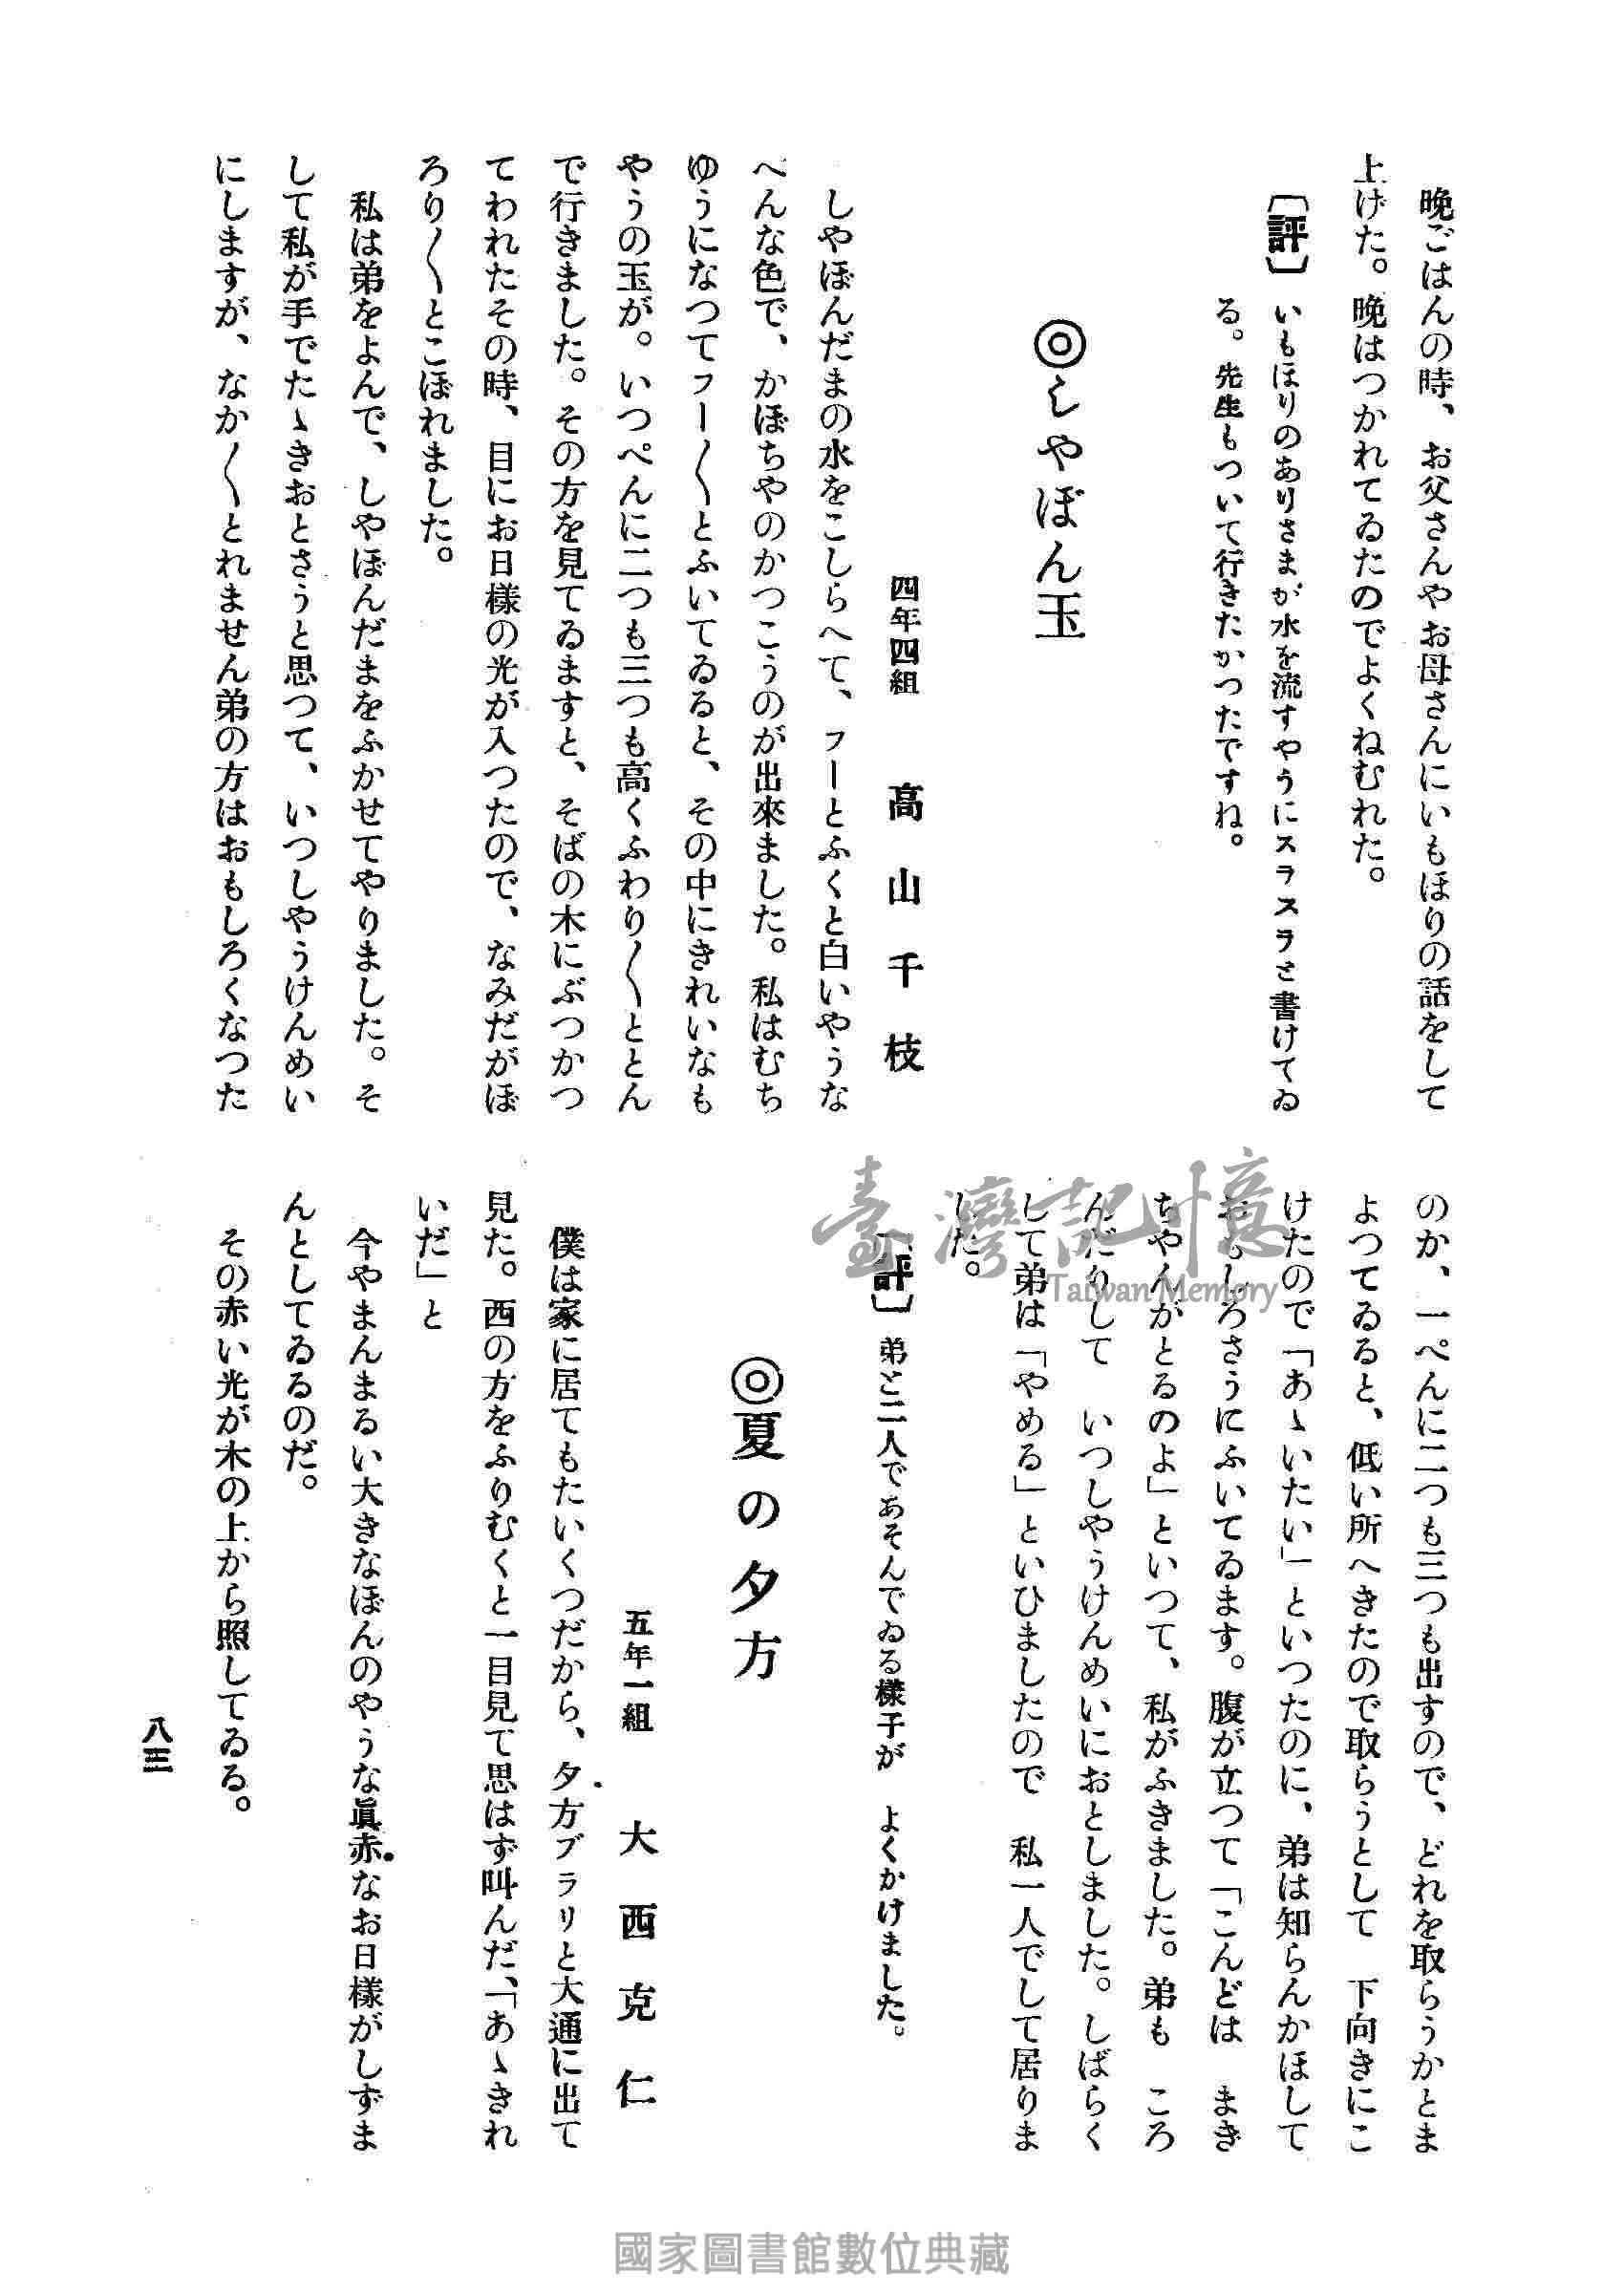 晩ごはんの時、お父さんやお母さんにいもほりの話をして
上げた。晩はつかれてゐたのでよくねむれた。
〔評〕いもほりのありさまが水を流すやうにスラスラと書けてゐ
る。先生もついて行きたかつたですね。
◎しやぼん玉
四年四組　高山千枝
しやぼんだまの水をこしらへて、フーとふくと白いやうな
へんな色で、かぼちやのかつこうのが出來ました。私はむち
ゆうになつてフー〳〵とふいてゐると、その中にきれいなも
やうの玉が。いつぺんに二つも三つも高くふわり〳〵ととん
で行きました。その方を見てゐますと、そばの木にぶつかつ
てわれたその時、目にお日樣の光が入つたので、なみだがぼ
ろり〳〵とこぼれました。
私は弟をよんで、しやぼんだまをふかせてやりました。そ
して私が手でたゝきおとさうと思つて、いつしやうけんめい
にしますが、なか〳〵とれません弟の方はおもしろくなつた
のか、一ぺんに二つも三つも出すので、どれを取らうかとま
よつてゐると、低い所へきたので取らうとして　下向きにこ
けたので「あゝいたい」といつたのに、弟は知らんかほして
おもしろさうにふいてゐます。腹が立つて「こんどは　まき
ちやんがとるのよ」といつて、私がふきました。弟も　ころ
んだりして　いつしやうけんめいにおとしました。しばらく
して弟は「やめる」といひましたので　私一人でして居りま
した。
〔評〕弟と二人であそんでゐる樣子が　よくかけました。
◎夏の夕方
五年一組　大西克仁
僕は家に居てもたいくつだから、夕方ブラリと大通に出て
見た。西の方をふりむくと一目見て思はず叫んだ、「あゝきれ
いだ」と
今やまんまるい大きなぼんのやうな眞赤なお日樣がしずま
んとしてゐるのだ。
その赤い光が木の上から照してゐる。
八三
臺灣記憶
Taiwan Memory
國家圖書館數位典藏